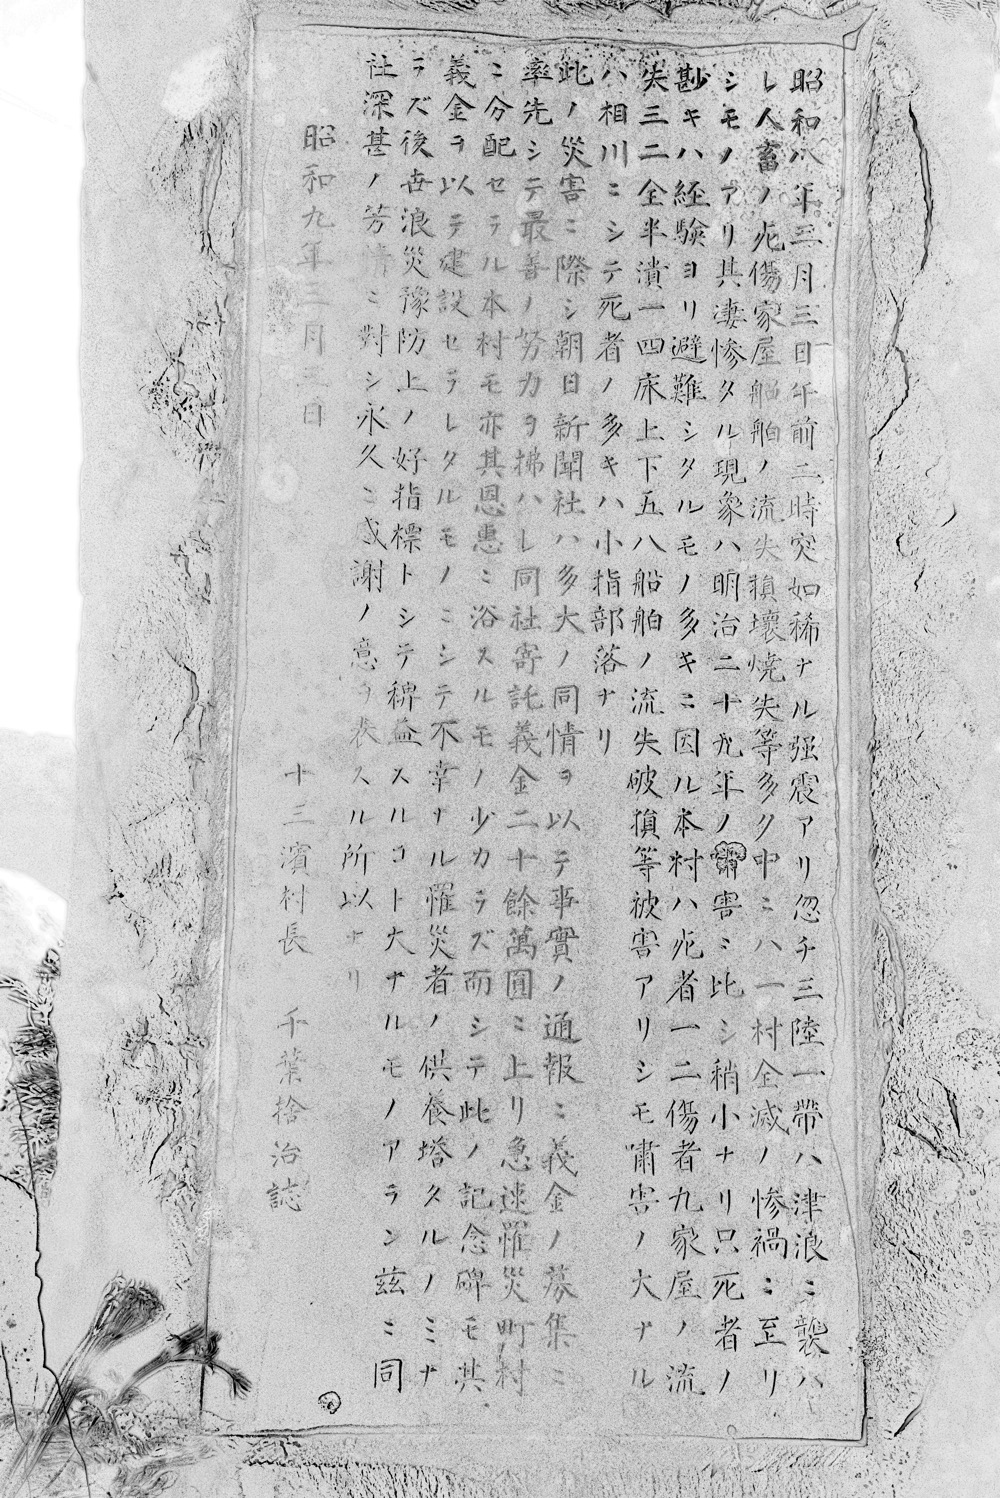 昭和八年三月三日午前二時突如稀ナル强震アリ忽チ三陸一帶ハ津浪ニ襲ハ
レ人畜ノ死傷家屋船舶ノ流失損壞燒失等多ク中ニハ一村全滅ノ惨禍ニ至リ
シモノアリ其凄惨タル現象ハ明治二十九年ノ嘯害ニ比シ稍小ナリ只死者ノ
尠キハ経験ヨリ避難シタルモノ多キニ因ル本村ハ死者一二傷者九家屋ノ流
失三二全半潰一四床上下五八船舶ノ流失破損等被害アリシモ嘯害ノ大ナル
ハ相川ニシテ死者ノ多キハ小指部落ナリ
此ノ災害ニ際シ朝日新聞社ハ多大ノ同情ヲ以テ事實ノ通報ニ義金ノ募集ニ
率先シテ最善ノ努力ヲ拂ハレ同社寄託義金二十餘萬圓ニ上リ急速罹災町村
ニ分配セラル本村モ亦其恩惠ニ浴スルモノ少カラズ而シテ此ノ記念碑モ其
義金ヲ以テ建設セラレタルモノニシテ不幸ナル罹災者ノ供養塔タルノミナ
ラズ後世浪災豫防上ノ好指標トシテ稗益スルコト大ナルモノアラン玆ニ同
社深甚ノ芳情ニ對シ永久ニ感謝ノ意ヲ表スル所以ナリ
昭和九年三月三日
十三濱村長 千葉捨治誌